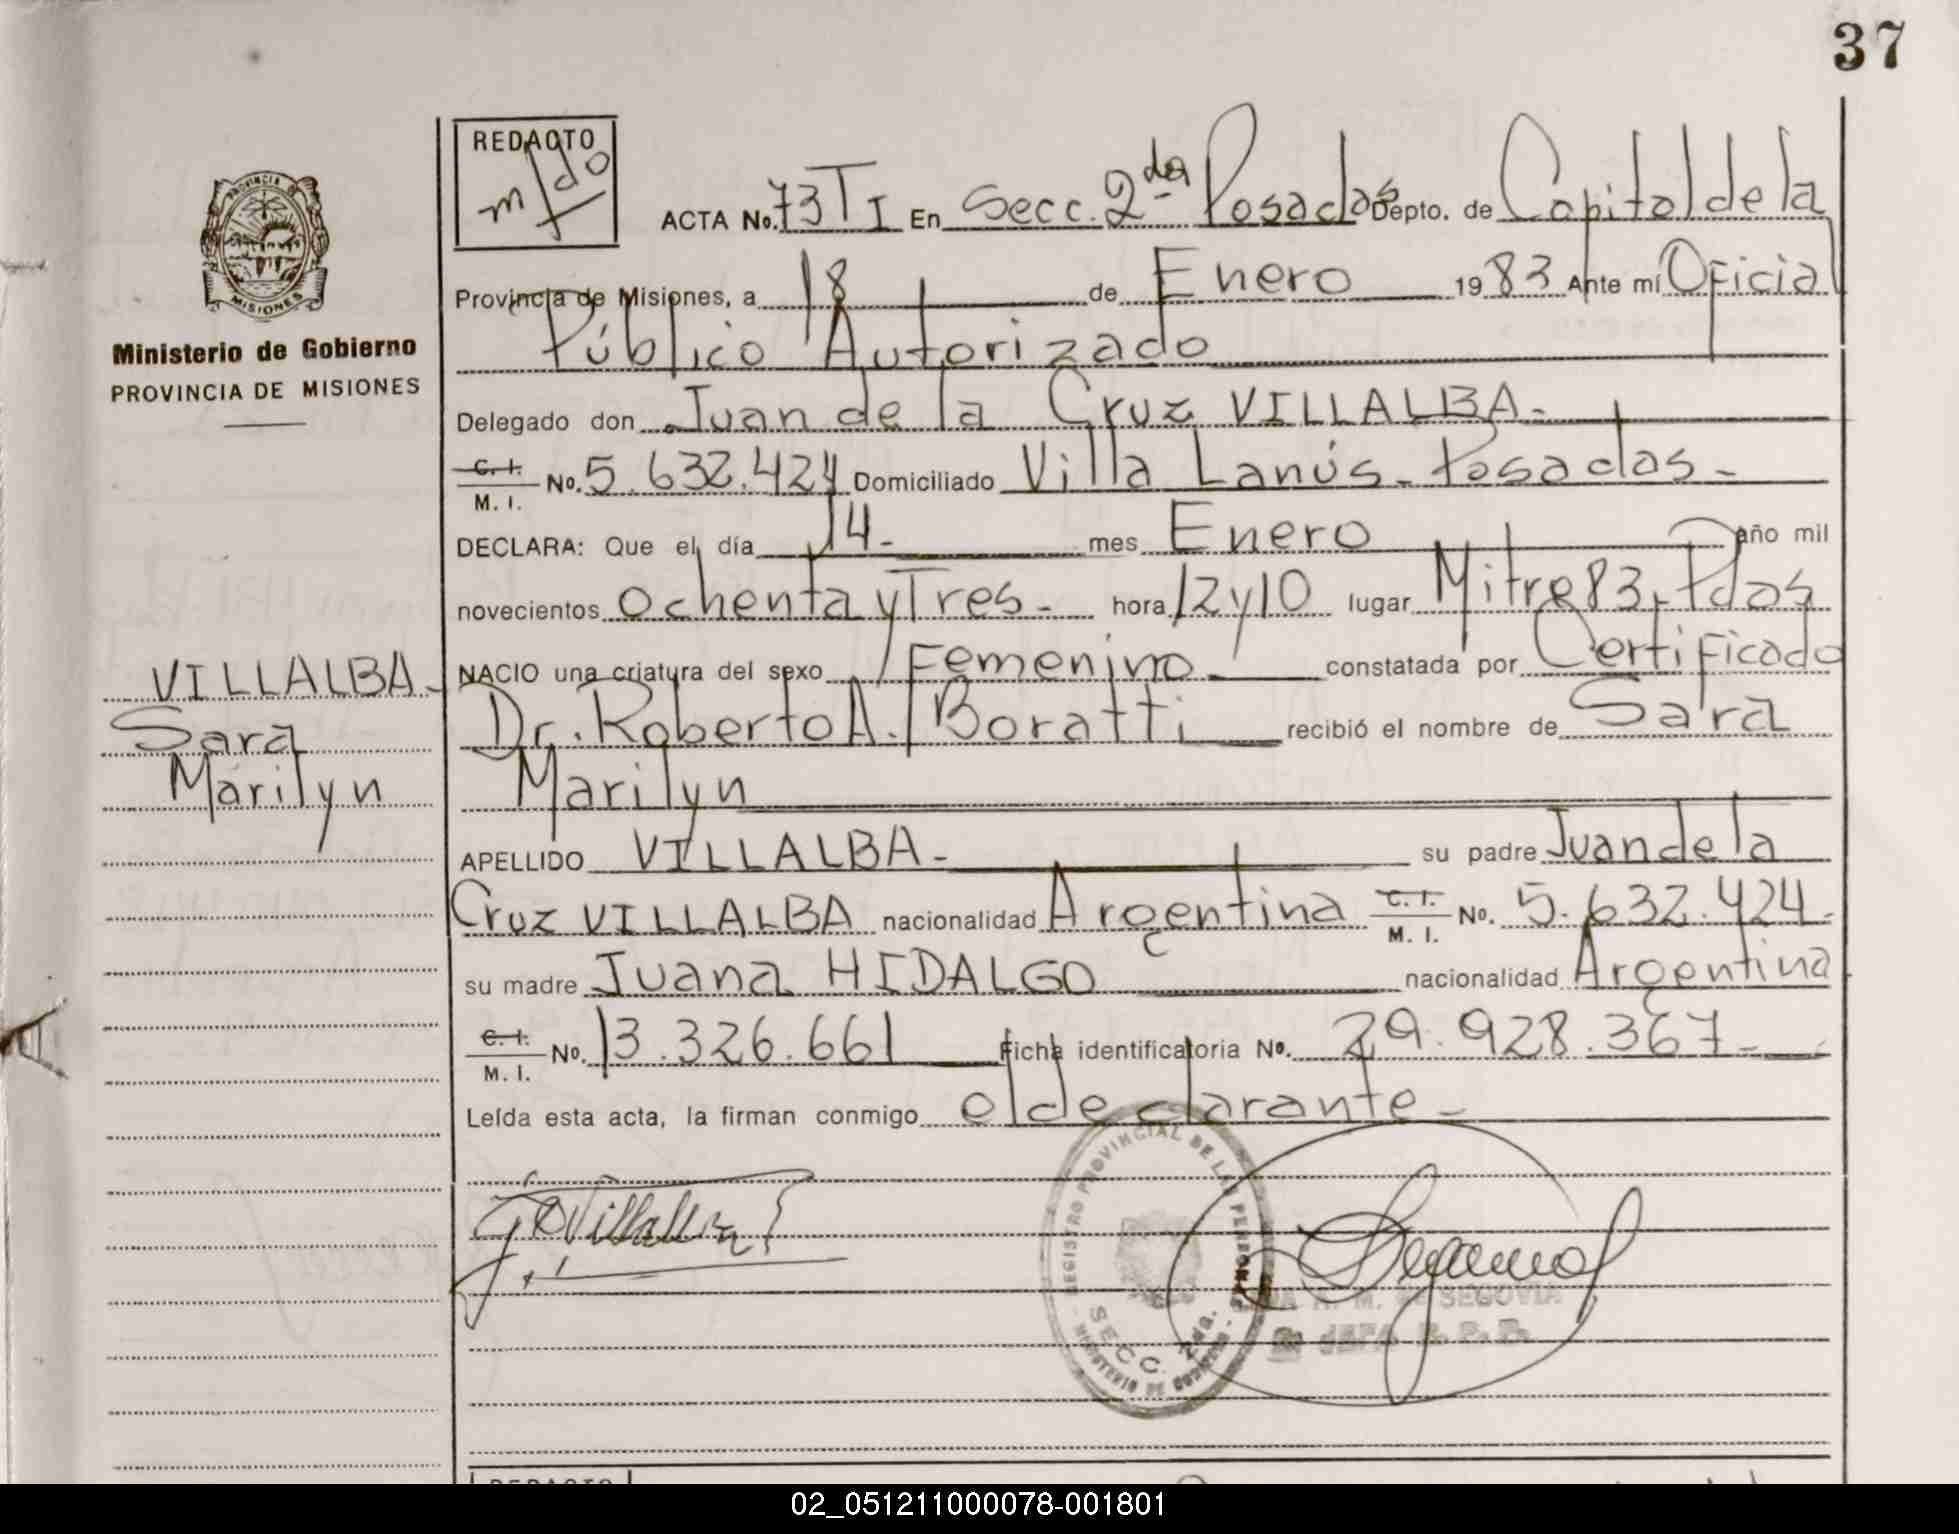 37
REDACTO
ACTA No. 73 T I En Secc. 2da Posadas Depto. de Capital de la
Provincia de Misiones, a 18 de Enero 1983 Ante mí Oficial
Público Autorizado
Delegado don Juan de la Cruz VILLALBA.-
C. I. M. I. No. 5.632.424 Domiciliado Villa Lanús - Posadas -
DECLARA: Que el día 14- mes Enero año mil
novecientos ochenta y Tres - hora 12 y 10 lugar Mitre 83, Pdas
NACIO una criatura del sexo Femenino constatada por Certificado
Dr. Roberto A. Boratti recibió el nombre de Sara
Marilyn
APELLIDO VILLALBA - su padre Juan de la
Cruz VILLALBA nacionalidad Argentina C. I. M. I. No. 5.632.424-
su madre Juana HIDALGO nacionalidad Argentina
C. I. M. I. No. 13.326.661 Ficha identificatoria No. 29.928.367-
Leída esta acta, la firman conmigo el declarante -
PROVINCIA DE
MISIONES
Ministerio de Gobierno
PROVINCIA DE MISIONES
VILLALBA -
Sara
Marilyn
REGISTRO PROVINCIAL DE LAS PERSONAS
SECC. 2da.
MINISTERIO DE GOBIERNO
M. DE SEGOVIA
JEFA R. P. P.
REDACTO
02_051211000078-001801